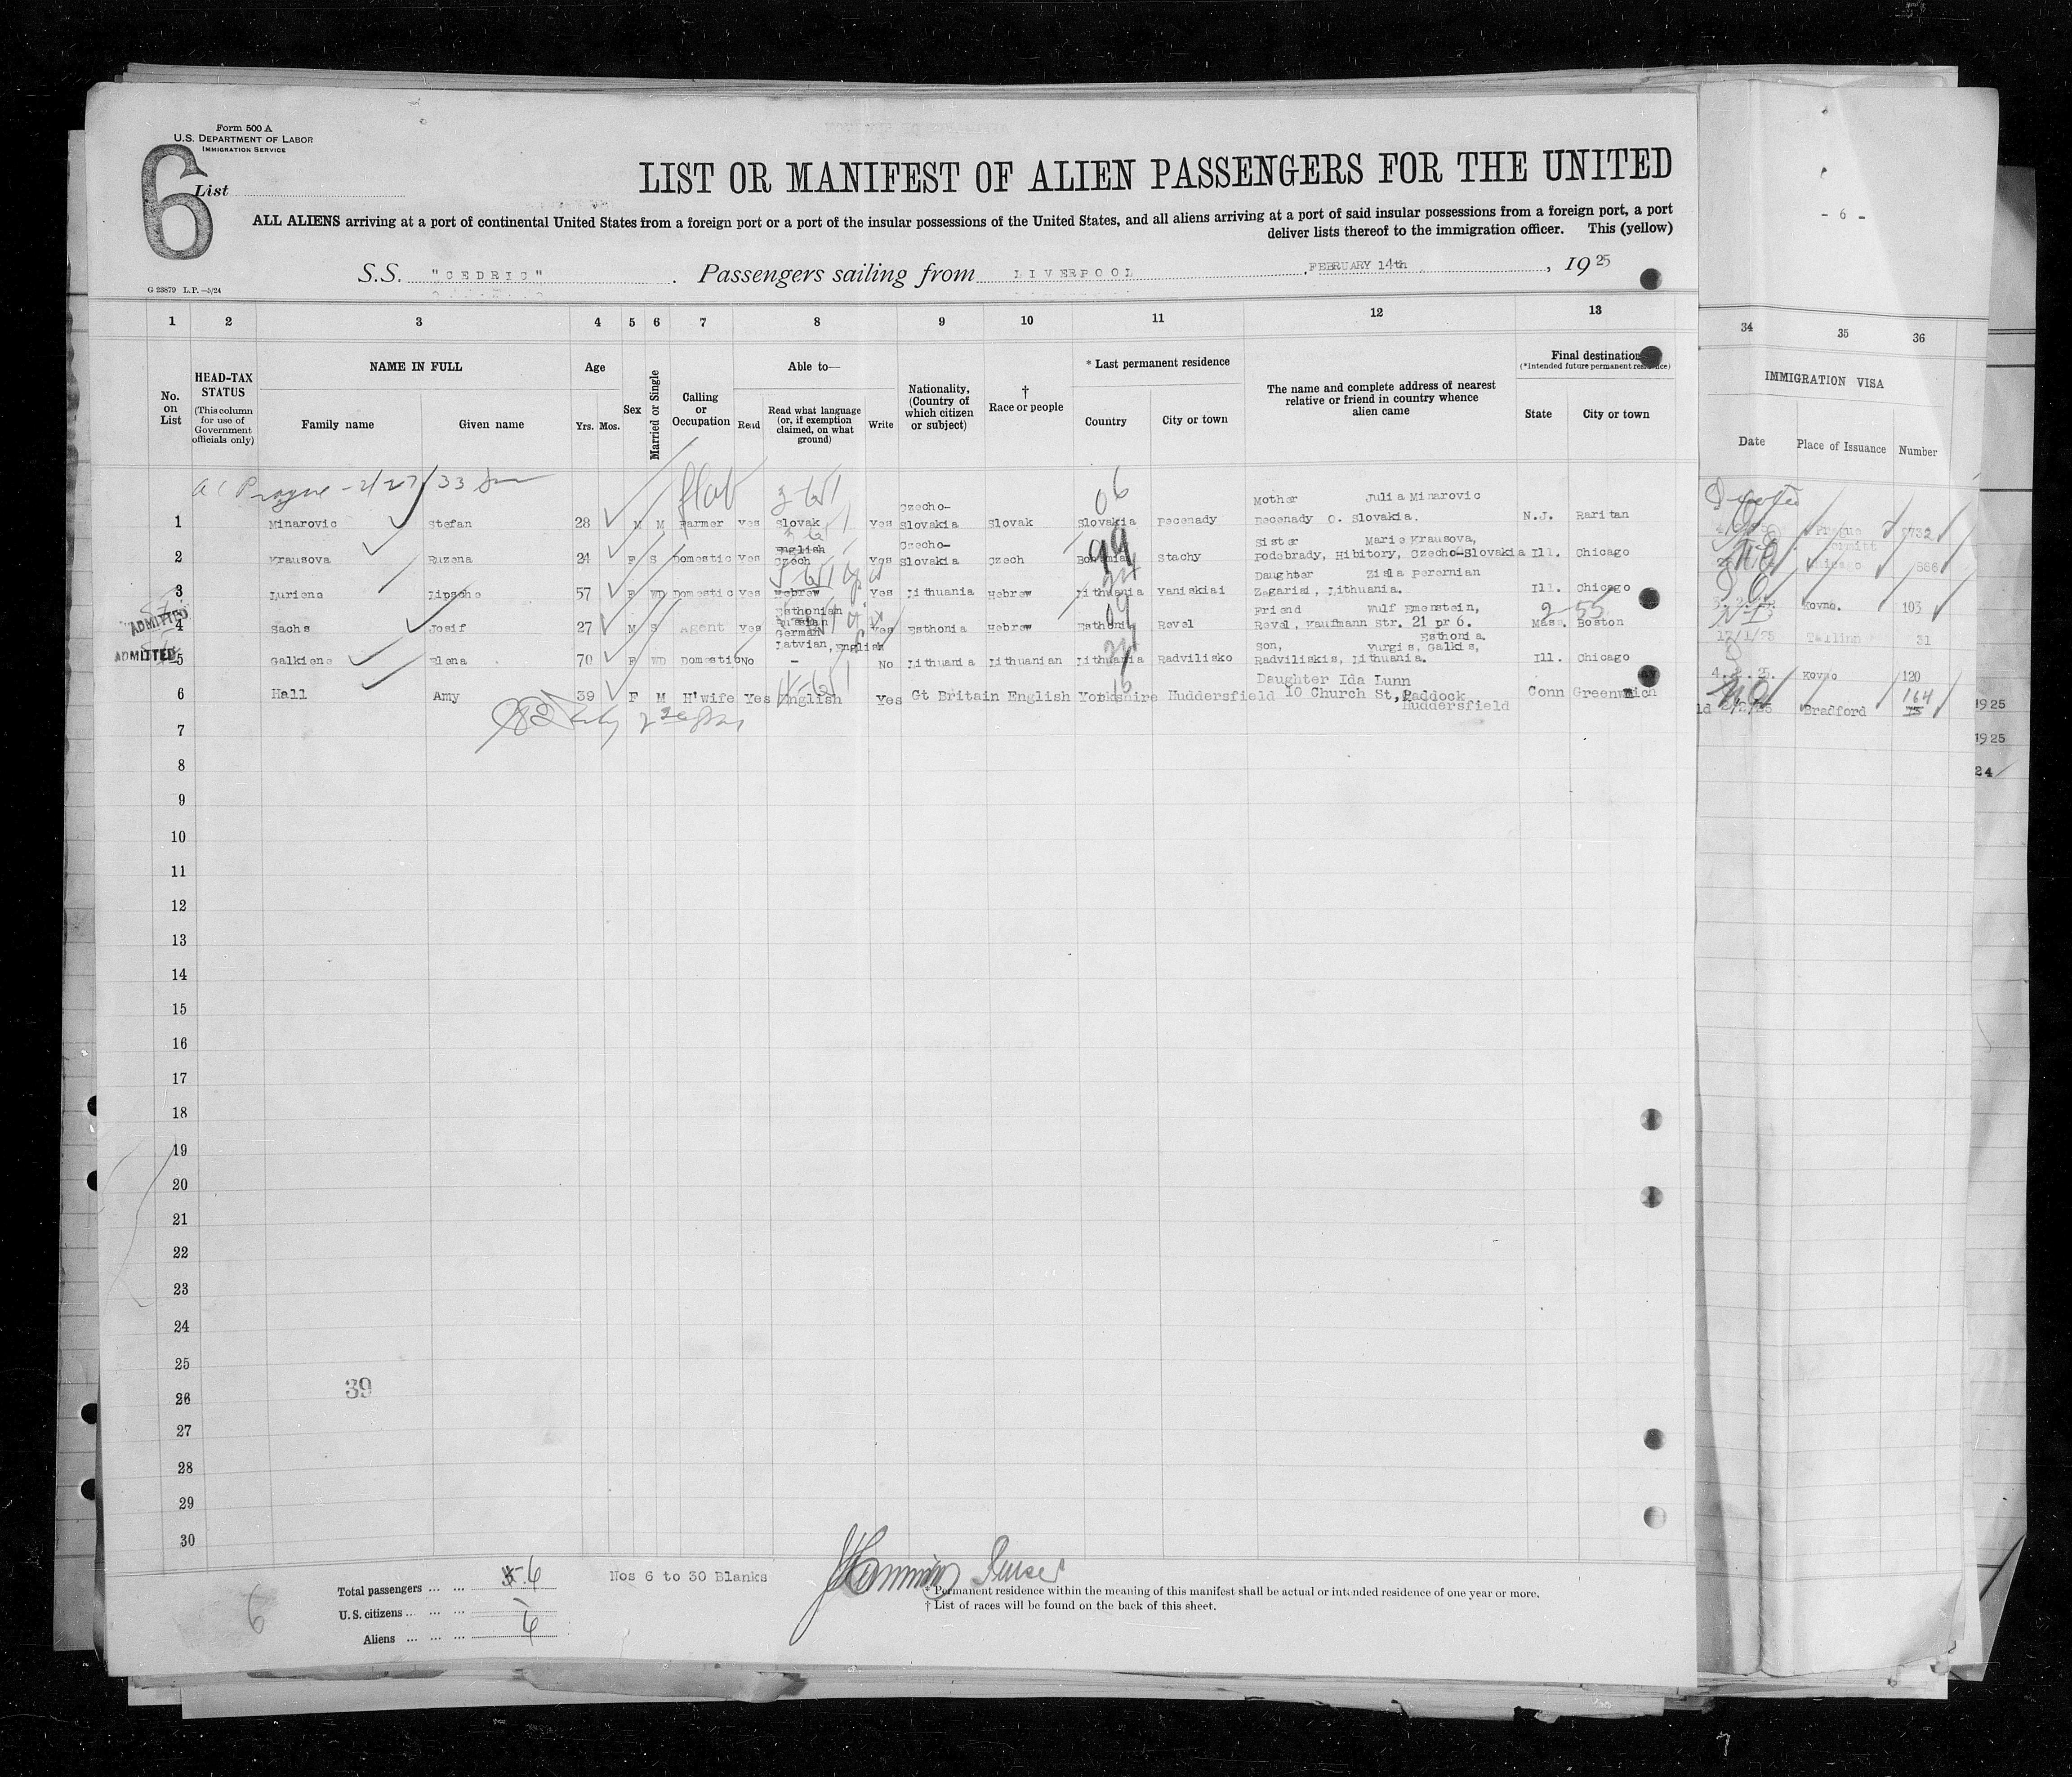 Form 500 A
U.S. DEPARTMENT OF LABOR
IMMIGRATION SERVICE
6
List
LIST OR MANIFEST OF ALIEN PASSENGERS FOR THE UNITED
ALL ALIENS arriving at a port of continental United States from a foreign port or a port of the insular possessions of the United States, and all aliens arriving at a port of said insular possessions from a foreign port, a port
deliver lists thereof to the immigration officer. This (yellow)
- 6 -
S.S. "CEDRIC". Passengers sailing from LIVERPOOL, FEBRUARY 14th, 1925
G 23879 L.P.—5/24
1 2 3 4 5 6 7 8 9 10 11 12 13 34 35 36
No. on List
HEAD-TAX STATUS
(This column for use of Government officials only)
NAME IN FULL
Family name
Given name
Age
Yrs. Mos.
Sex
Married or Single
Calling or Occupation
Able to—
Read
Read what language (or, if exemption claimed, on what ground)
Write
Nationality, (Country of which citizen or subject)
† Race or people
* Last permanent residence
Country
City or town
The name and complete address of nearest relative or friend in country whence alien came
Final destination
(*Intended future permanent residence)
State
City or town
IMMIGRATION VISA
Date
Place of Issuance
Number
Prague - 2/27/33
1 Minarovic Stefan 28 M M Farmer Yes Slovak Yes Czecho-Slovakia Slovak Slovakia Pecenady Mother Julia Minarovic Pecenady O. Slovakia. N.J. Raritan Prague
2 Krausova Ruzena 24 F S Domestic Yes English Czech Yes Czecho-Slovakia Czech Bohemia Stachy Sister Marie Krausova, Podebrady, Hibitory, Czecho-Slovakia Ill. Chicago Chicago
3 Luriene Lipsche 57 F WD Domestic Yes Hebrew Yes Lithuania Hebrew Lithuania Yaniskiai Daughter Zisla Perernian Zagariai, Lithuania. Ill. Chicago Kovno. 103
ADMITTED
4 Sachs Josif 27 M S Agent Yes Esthonian Russian German Latvian, English Yes Esthonia Hebrew Esthonia Revel Friend Wulf Emenstein, Revel, Kaufmann Str. 21 pr 6. Esthonia. Mass. Boston 2-55 Tallinn 31
ADMITTED
5 Galkiene Elena 70 F WD Domestic No - No Lithuania Lithuanian Lithuania Radvilisko Son, Yurgis, Galkis, Radviliskis, Lithuania. Ill. Chicago Kovno 120
6 Hall Amy 39 F M H'wife Yes English Yes Gt Britain English Yorkshire Huddersfield Daughter Ida Lunn 10 Church St, Paddock Huddersfield Conn Greenwich Bradford 164
7
8
9
10
11
12
13
14
15
16
17
18
19
20
21
22
23
24
25
26
27
28
29
30
1925
1925
24
39
Total passengers ... ... 6
U. S. citizens ... ... ... -
Aliens ... ... ... 6
Nos 6 to 30 Blanks
6
* Permanent residence within the meaning of this manifest shall be actual or intended residence of one year or more.
† List of races will be found on the back of this sheet.